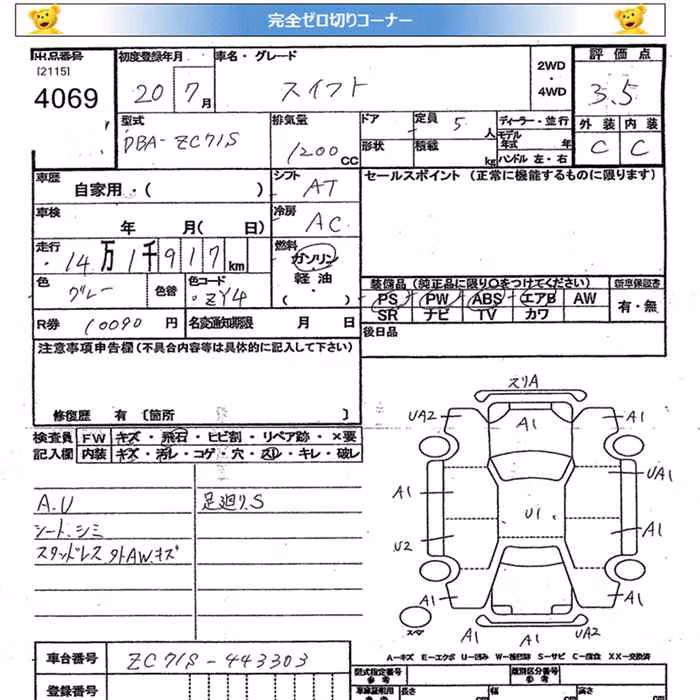 完全ゼロ切りコーナー
出品番号 初度登録年月 車名・グレード 2WD ・ 4WD 評価点
[2115]
4069 20 7月 スイフト 3.5
型式 排気量 ドア 定員 5 人 ディーラー・並行 外装 内装
DBA-ZC71S 1200 CC 形状 積載 kg モデル年式 年 C C
ハンドル 左・右
車歴 自家用・( ) シフト AT セールスポイント (正常に機能するものに限ります)
車検 年 月( 日) 冷房 AC
走行 14万1千917km 燃料 ガソリン
軽油
・( )
色 グレー 色替 色コード ZY4 装備品 (純正品に限り○をつけてください) 新車保証書
PS PW ABS エアB AW 有・無
SR ナビ TV カワ
R券 10090 円 名変通知期限 月 日 後日品
注意事項申告欄 (不具合内容等は具体的に記入して下さい)
修復歴 有 [箇所 ]
検査員 FW キズ・飛石・ヒビ割・リペア跡・×要
記入欄 内装 キズ・汚レ・コゲ・穴・スレ・キレ・破レ
A.U 足廻り.S
シート.シミ
スタッドレス 外AW.キズ
スリA
UA2 A1 A1
UA1
A1
U1
U2 A1
A1 A1
スペア
A1 A1 UA2
A−キズ E−エクボ U−凹み W−補修跡 S−サビ C−腐食 XX−交換済
車台番号 ZC71S-443303
登録番号
型式指定番号 参考 類別区分番号 参考
長さ 幅 高さ